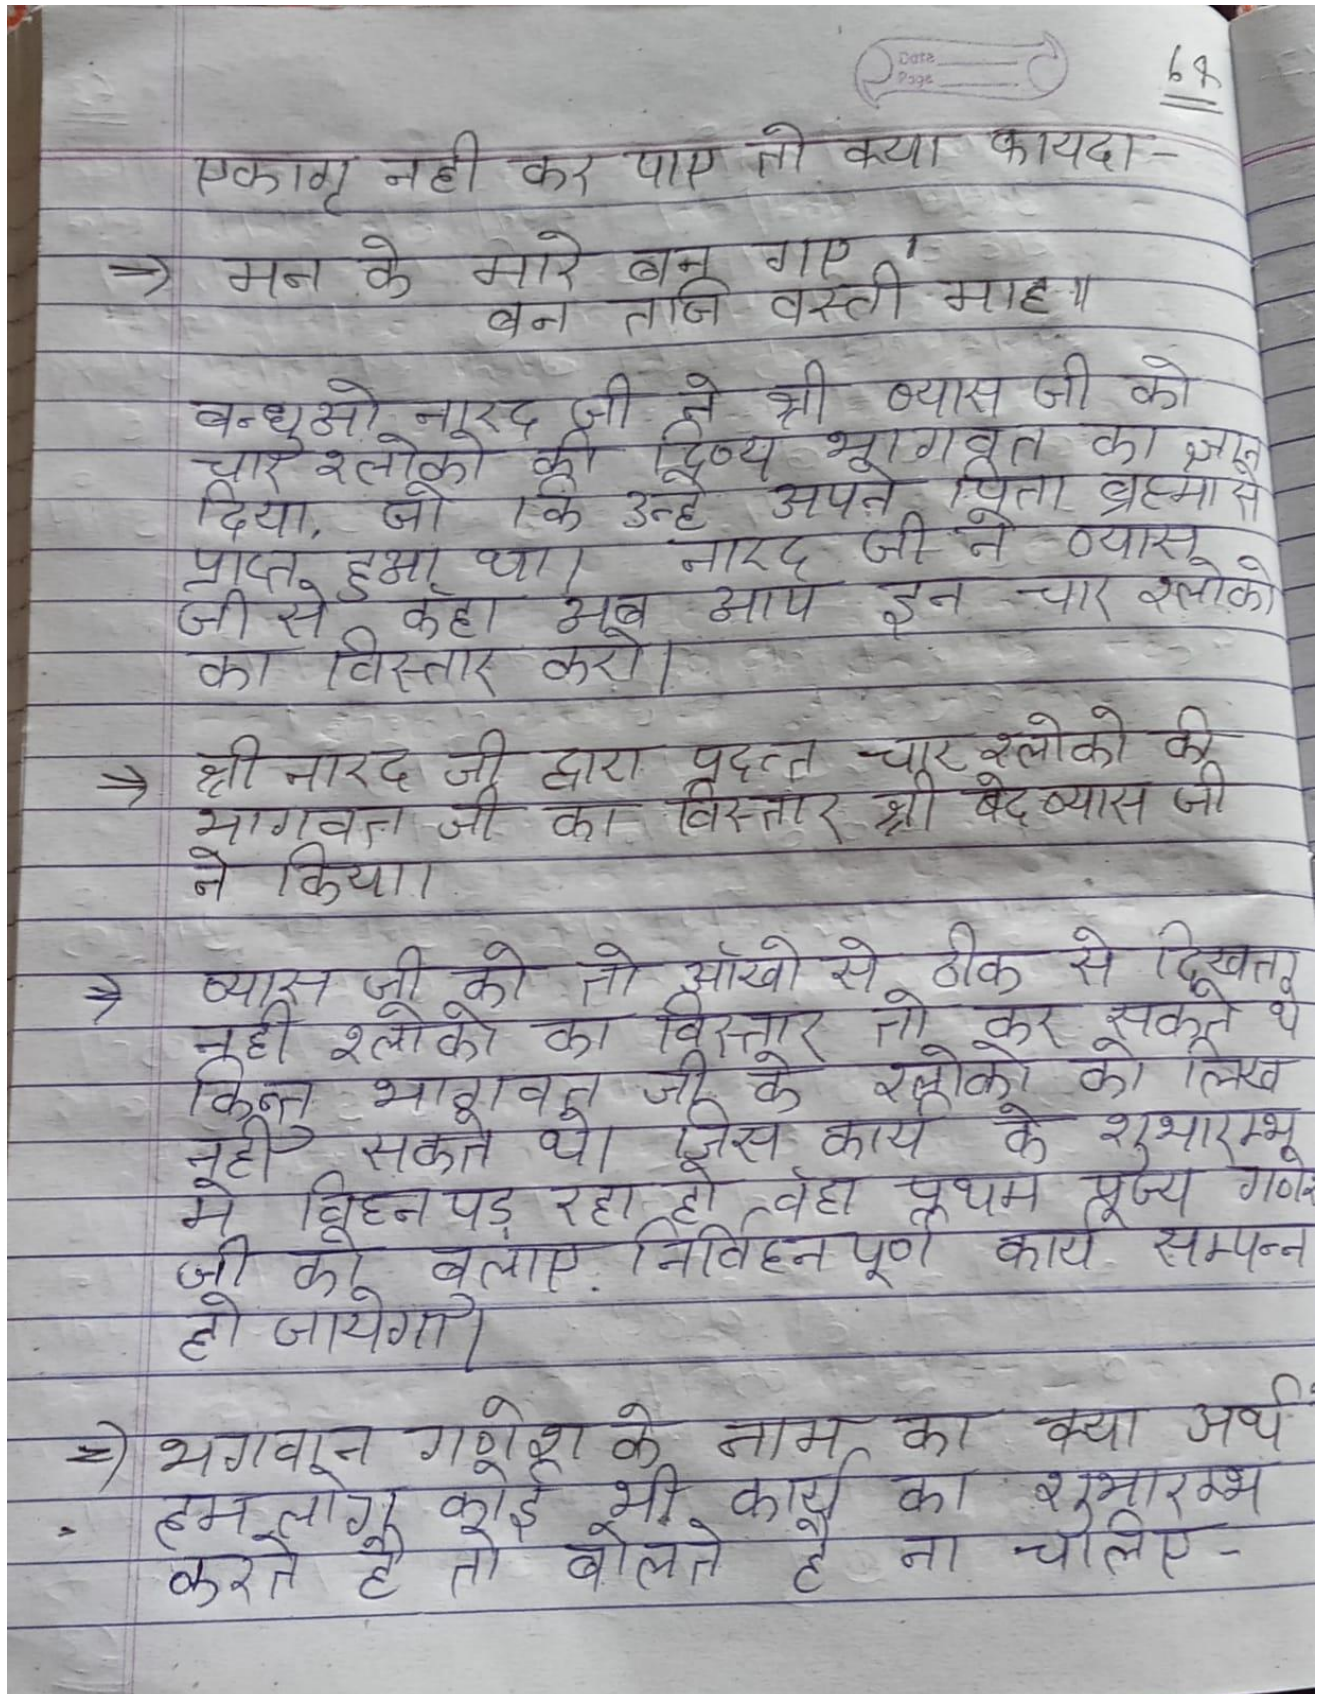 Date
Page
67
एकागृ नही कर पाए तो क्या फायदा -
⇒ मन के मारे बन गए ।
बन तजि वस्ती माह ॥
बन्धुओ नारद जी ने श्री व्यास जी को
चार श्लोको की दिव्य भागवत का ज्ञान
दिया, जो कि उन्हे अपने पिता ब्रह्मा से
प्राप्त हुआ था। नारद जी ने व्यास
जी से कहा अब आप इन चार श्लोको
का विस्तार करो।
⇒ श्री नारद जी द्वारा प्रदत्त चार श्लोको की
भागवत जी का विस्तार श्री बेदव्यास जी
ने किया।
⇒ व्यास जी को तो आँखो से ठीक से दिखता
नही श्लोको का विस्तार तो कर सकते थे
किन्तु भागवत जी के श्लोको को लिख
नही सकते थे। जिस कार्य के शुभारम्भ
मे विहन पड़ रहा हो वहा प्रथम पूज्य गणेश
जी को बुलाए निर्विहनपूर्ण कार्य सम्पन्न
हो जायेगा।
⇒ भगवान गणेश के नाम का क्या अर्थ है
हम लोग कोई भी कार्य का शुभारम्भ
करते है तो बोलते है ना चलिए -